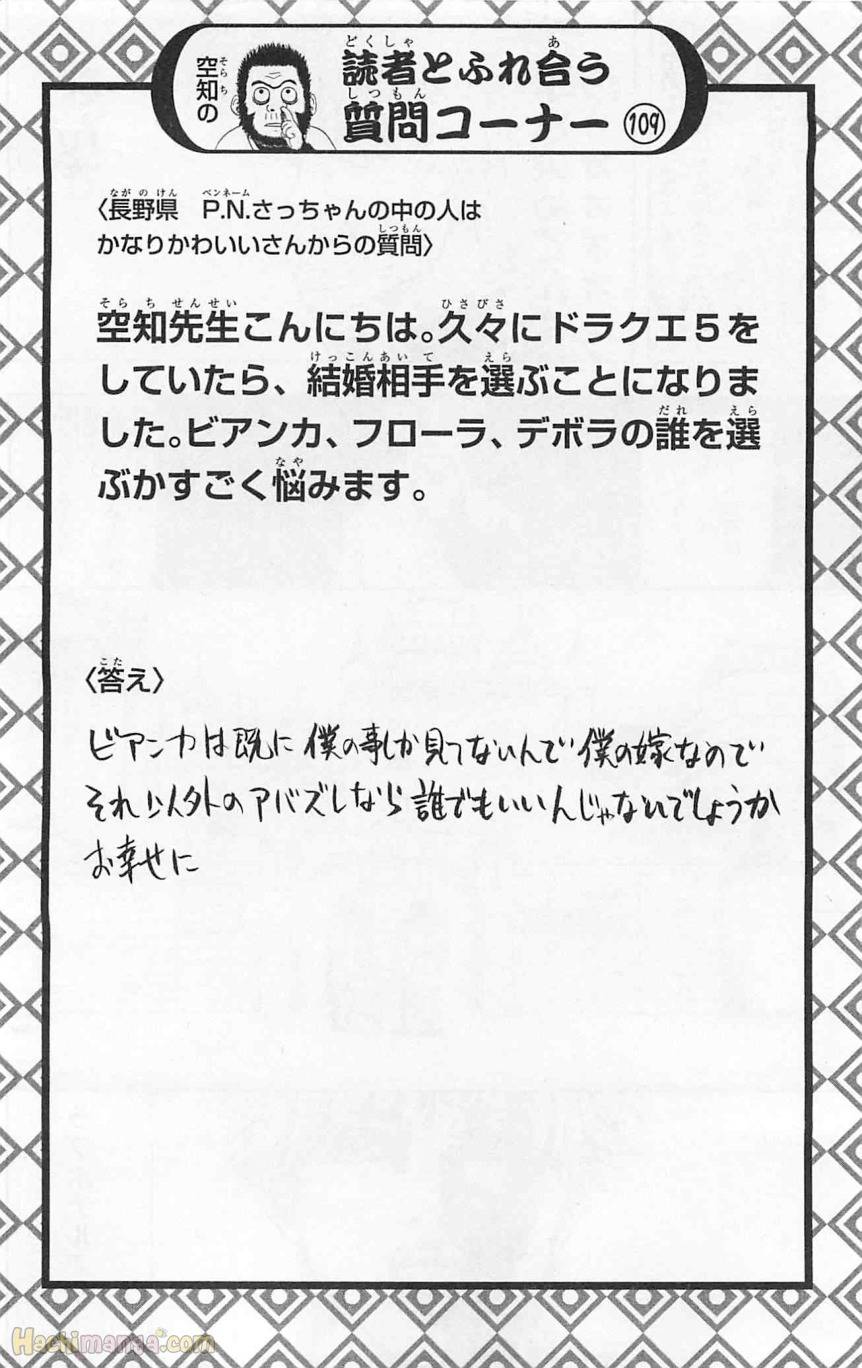 空知の
読者とふれ合う
質問コーナー 109
〈長野県 P.N.さっちゃんの中の人は
かなりかわいいさんからの質問〉
空知先生こんにちは。久々にドラクエ5を
していたら、結婚相手を選ぶことになりま
した。ビアンカ、フローラ、デボラの誰を選
ぶかすごく悩みます。
〈答え〉
ビアンカは既に僕の事しか見てないんで僕の嫁なので
それ以外のアバズレなら誰でもいいんじゃないでしょうか
お幸せに
Hachimanga.com